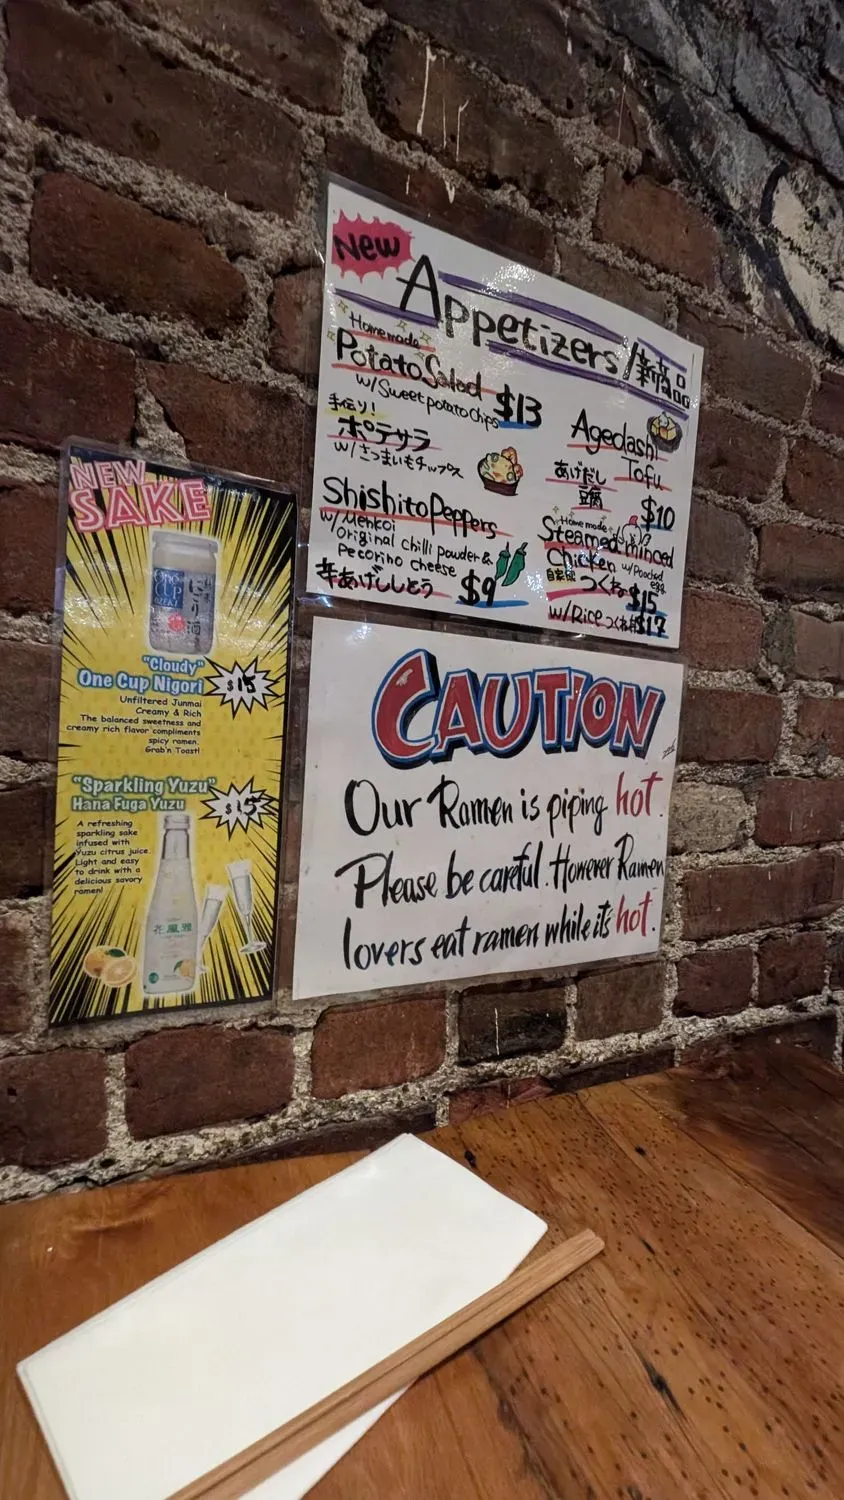 New
Appetizers/新商品
Homemade
Potato Salad
w/Sweet potato chips $13
手作り!
ポテサラ
w/さつまいもチップス
Shishito Peppers
w/Menkoi
Original chilli powder &
Pecorino cheese
辛あげししとう $9
Agedashi
Tofu
あげだし
豆腐
$10
Homemade
Steamed minced
Chicken w/Poached
egg
自家製
つくね $15
w/Rice つくね丼 $17
NEW
SAKE
One
CUP
OZEKI
にごり酒
"Cloudy"
One Cup Nigori
$15
Unfiltered Junmai
Creamy & Rich
The balanced sweetness and
creamy rich flavor compliments
spicy ramen.
Grab'n Toast!
"Sparkling Yuzu"
Hana Fuga Yuzu
$15
A refreshing
sparkling sake
infused with
Yuzu citrus juice.
Light and easy
to drink with a
delicious savory
ramen!
花風雅
CAUTION
Our Ramen is piping hot.
Please be careful. However Ramen
lovers eat ramen while it's hot.